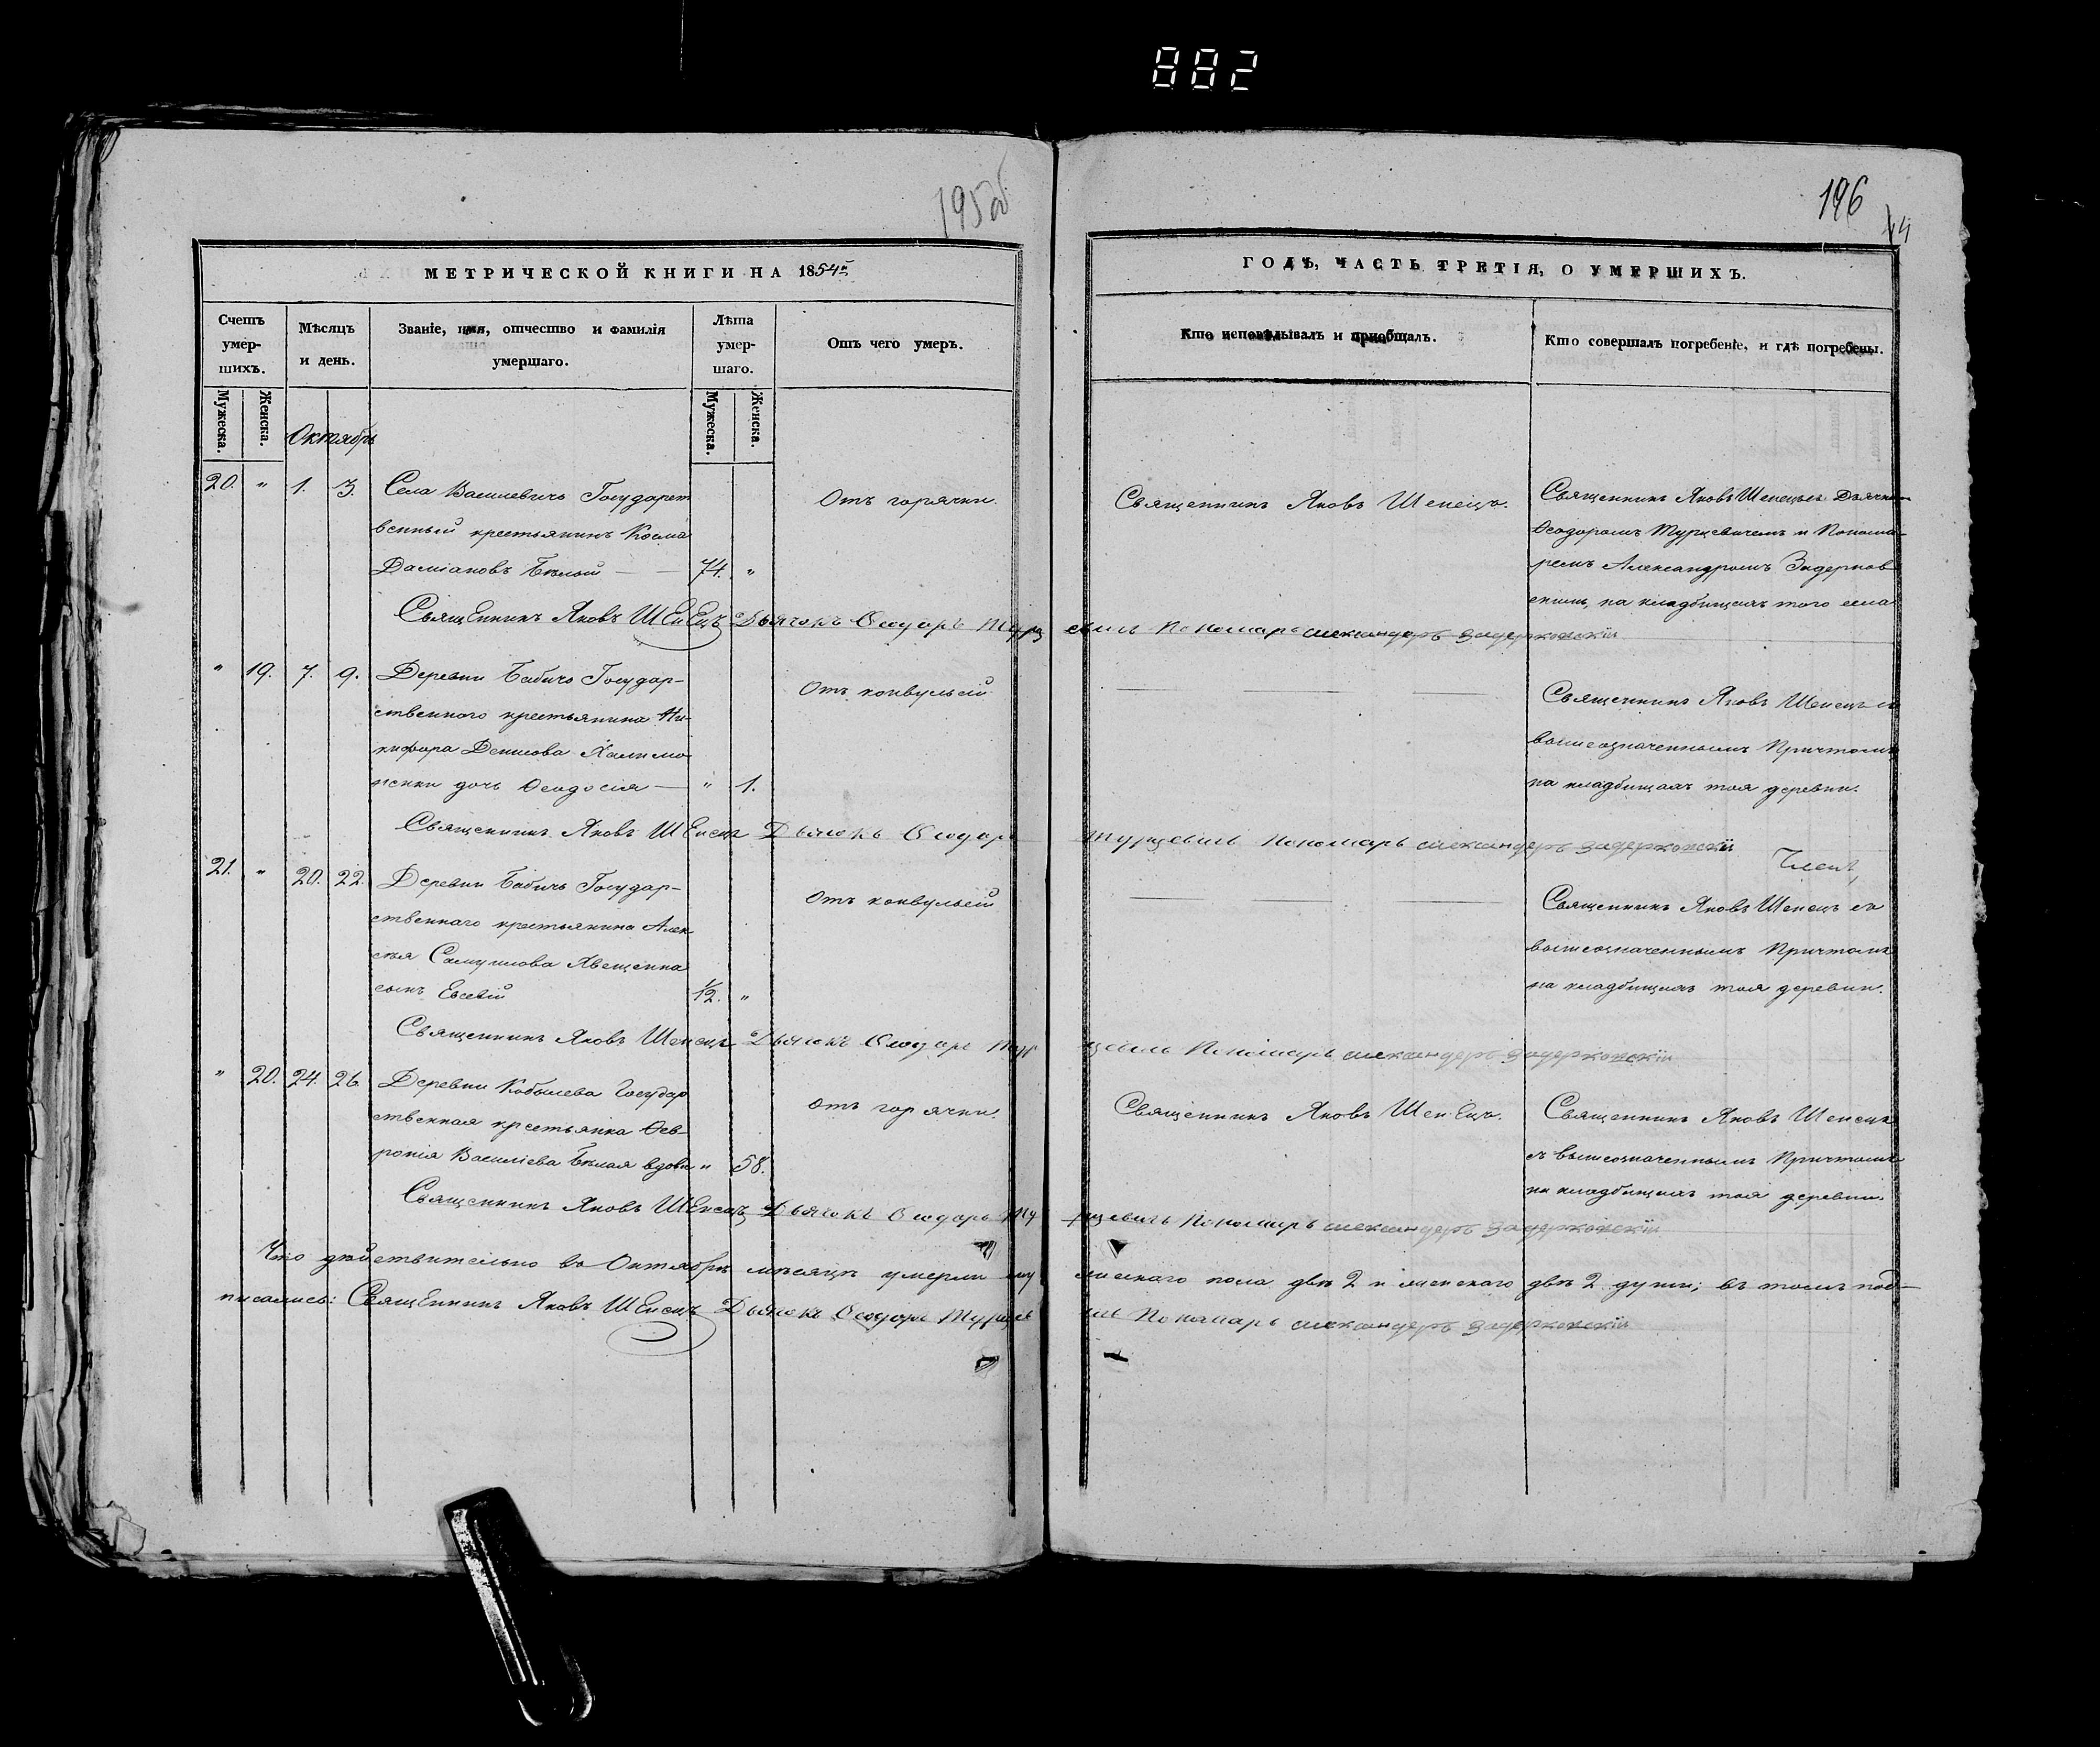 882
195об
196
44
МЕТРИЧЕСКОЙ КНИГИ НА 1854й
ГОДЪ, ЧАСТЬ ТРЕТІЯ, О УМЕРШИХЪ.
Счетъ умер-шихъ.
Мѣсяцъ и день.
Званіе, имя, отчество и фамилія
умершаго.
Лѣта умер-шаго.
Отъ чего умеръ.
Кто исповѣдывалъ и пріобщалъ.
Кто совершалъ погребеніе, и гдѣ погребены.
Мужеска.
Женска.
Мужеска.
Женска.
Октябрь
20. " 1. 3. Села Василевичъ Государст
венный крестьянинъ Косма
Даміановъ Бѣлый — 74. "
Отъ горячки.
Священникъ Яковъ Шепецъ.
Священникъ Яковъ Шепецъ съ Дьячкомъ
Ѳеодоромъ Турцевичемъ и Понома-
ремъ Александромъ Задерков
скимъ, на кладбищахъ того села
Священникъ Яковъ Шепецъ Дьячокъ Ѳеодоръ Турцевичъ Пономарь александеръ задерковскій
" 19. 7. 9. Деревни Бабичъ Государ-
ственного крестьянина Ни-
кифора Денисова Халимо
ненки дочь Ѳеодосія — " 1.
Отъ конвульсій
Священникъ Яковъ Шепецъ съ
вышеозначеннымъ Причтомъ
на кладбищахъ тоя деревни.
Священникъ Яковъ Шепецъ Дьячокъ Ѳеодоръ Турцевичъ Пономарь александеръ задерковскій
21. " 20. 22. Деревни Бабичъ Государ-
ственнаго крестьянина Алек
сѣя Самуилова
сынъ Евсевій 1/2. "
Отъ конвульсій
Священникъ Яковъ Шепецъ съ
вышеозначеннымъ Причтомъ
на кладбищахъ тоя деревни.
Священникъ Яковъ Шепецъ Дьячокъ Ѳеодоръ Турцевичъ Пономарь александеръ задерковскій
" 20. 24. 26. Деревни Кобылева Государ
ственная крестьянка Ѳев-
ронія Василіева Бѣлая вдова " 58.
отъ горячки.
Священникъ Яковъ Шепецъ.
Священникъ Яковъ Шепецъ
съ вышеозначеннымъ Причтомъ
на кладбищахъ тоя деревни.
Священникъ Яковъ Шепецъ Дьячокъ Ѳеодоръ Турцевичъ Пономарь александеръ задерковскій
Что дѣйствительно въ Октябрѣ мѣсяцѣ умерли мужескаго пола двѣ 2 и женского двѣ 2 души; въ томъ под-
писались: Священникъ Яковъ Шепецъ Дьячокъ Ѳеодоръ Турцевичъ Пономарь александеръ задерковскій